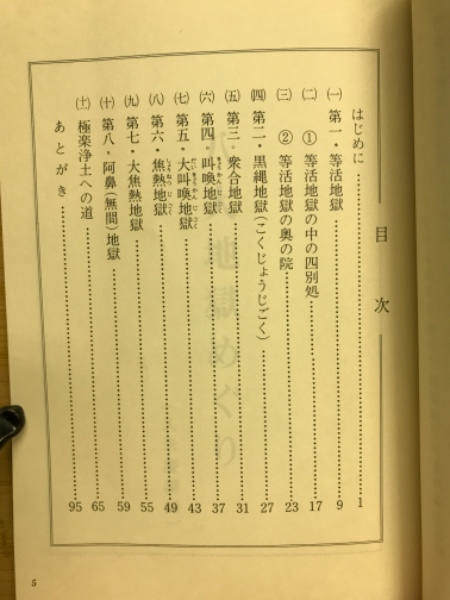 目次
はじめに……1
㈠ 第一・等活地獄……9
㈡ ① 等活地獄の中の四別処……17
㈢ ② 等活地獄の奥の院……23
㈣ 第二・黒縄地獄(こくじょうじごく)……27
㈤ 第三・衆合地獄……31
㈥ 第四・叫喚地獄……37
㈦ 第五・大叫喚地獄……43
㈧ 第六・焦熱地獄……49
㈨ 第七・大焦熱地獄……55
㈩ 第八・阿鼻(無間)地獄……59
(十一) 極楽浄土への道……65
あとがき……95
5